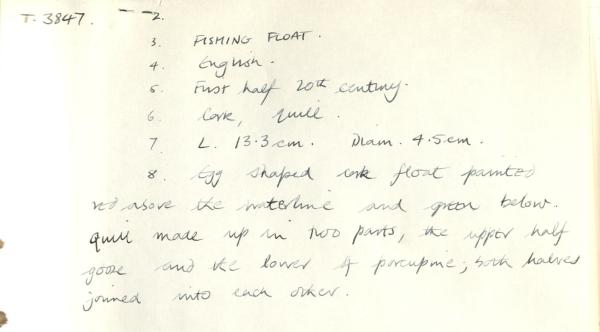 T. 3847. -- 2.
3. FISHING FLOAT.
4. English.
5. First half 20th century.
6. Cork, quill.
7 L. 13.3 cm. Diam. 4.5 cm.
8. Egg shaped cork float painted
red above the waterline and green below.
quill made up in two parts, the upper half
goose and the lower of porcupine; both halves
joined into each other.